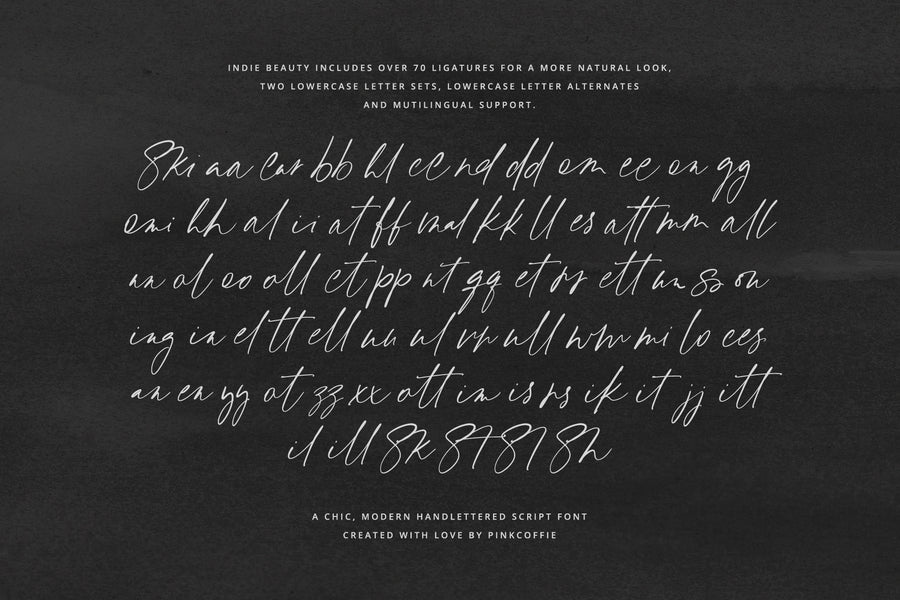 INDIE BEAUTY INCLUDES OVER 70 LIGATURES FOR A MORE NATURAL LOOK,
TWO LOWERCASE LETTER SETS, LOWERCASE LETTER ALTERNATES
AND MUTILINGUAL SUPPORT.
Ski aa ear bb hl cc nd dd om ee on gg
omi hh al ii at ff nd kk ll es att mm all
an ol oo oll ct pp nt qq et rr ett un ss ou
ing in el tt ell uu ul vv ull ww mi lo ees
an en yy ot zz xx ott im is rs ik it jj itt
il ill Sk St Sl Sh
A CHIC, MODERN HANDLETTERED SCRIPT FONT
CREATED WITH LOVE BY PINKCOFFIE